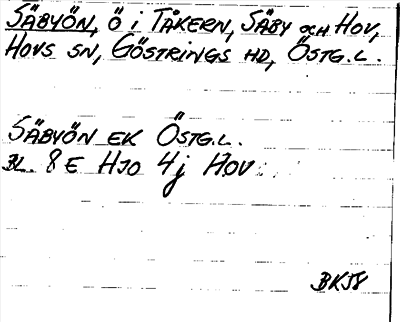 SÄBYÖN, Ö i TÅKERN, SÄBY och HOV,
HOVS SN, GÖSTRINGS HD, ÖSTG.L.
SÄBYÖN EK ÖSTG.L.
BL. 8E HJO 4j HOV
BKJ8